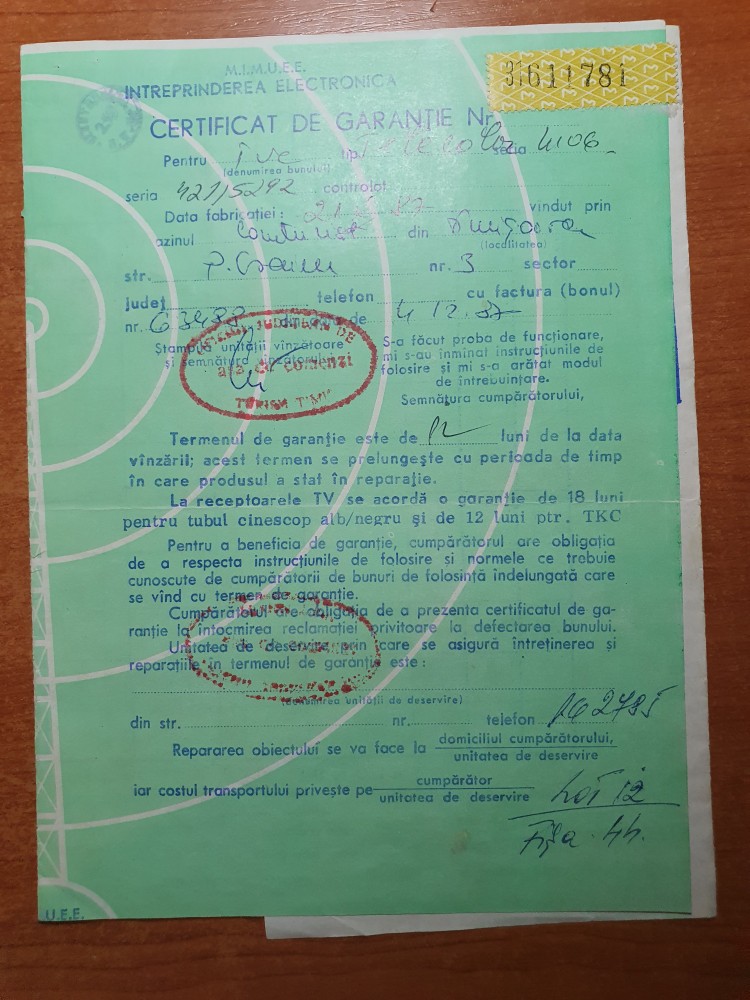 M.I.M.U.E.E.
INTREPRINDEREA ELECTRONICA
31611781
CERTIFICAT DE GARANȚIE Nr
Pentru TVC tip Telecolor seria 4106
(denumirea bunului)
seria 421/5292 controlor
Data fabricației: 87 vîndut prin
azinul Continental din Timișoara
(localitatea)
str. nr. 3 sector
județ telefon cu factura (bonul)
nr. 63488 din de 4 12.87
Ștampila unității vînzătoare
și semnătura vînzătorului
comenzi
S-a făcut proba de funcționare,
mi s-au înmînat instrucțiunile de
folosire și mi s-a arătat modul
de întrebuințare.
Semnătura cumpărătorului,
Termenul de garanție este de 12 luni de la data
vînzării; acest termen se prelungește cu perioada de timp
în care produsul a stat în reparație.
La receptoarele TV se acordă o garanție de 18 luni
pentru tubul cinescop alb/negru și de 12 luni ptr. TKC
Pentru a beneficia de garanție, cumpărătorul are obligația
de a respecta instrucțiunile de folosire și normele ce trebuie
cunoscute de cumpărătorii de bunuri de folosință îndelungată care
se vînd cu termen de garanție.
Cumpărătorul are obligația de a prezenta certificatul de ga-
ranție la întocmirea reclamației privitoare la defectarea bunului.
Unitatea de deservire prin care se asigură întreținerea și
reparațiile în termenul de garanție este:
(denumirea unității de deservire)
din str. nr. telefon 162785
Repararea obiectului se va face la domiciliul cumpărătorului,
unitatea de deservire
iar costul transportului privește pe cumpărător
unitatea de deservire
Lot 12
Fișa 44.
U.E.E.